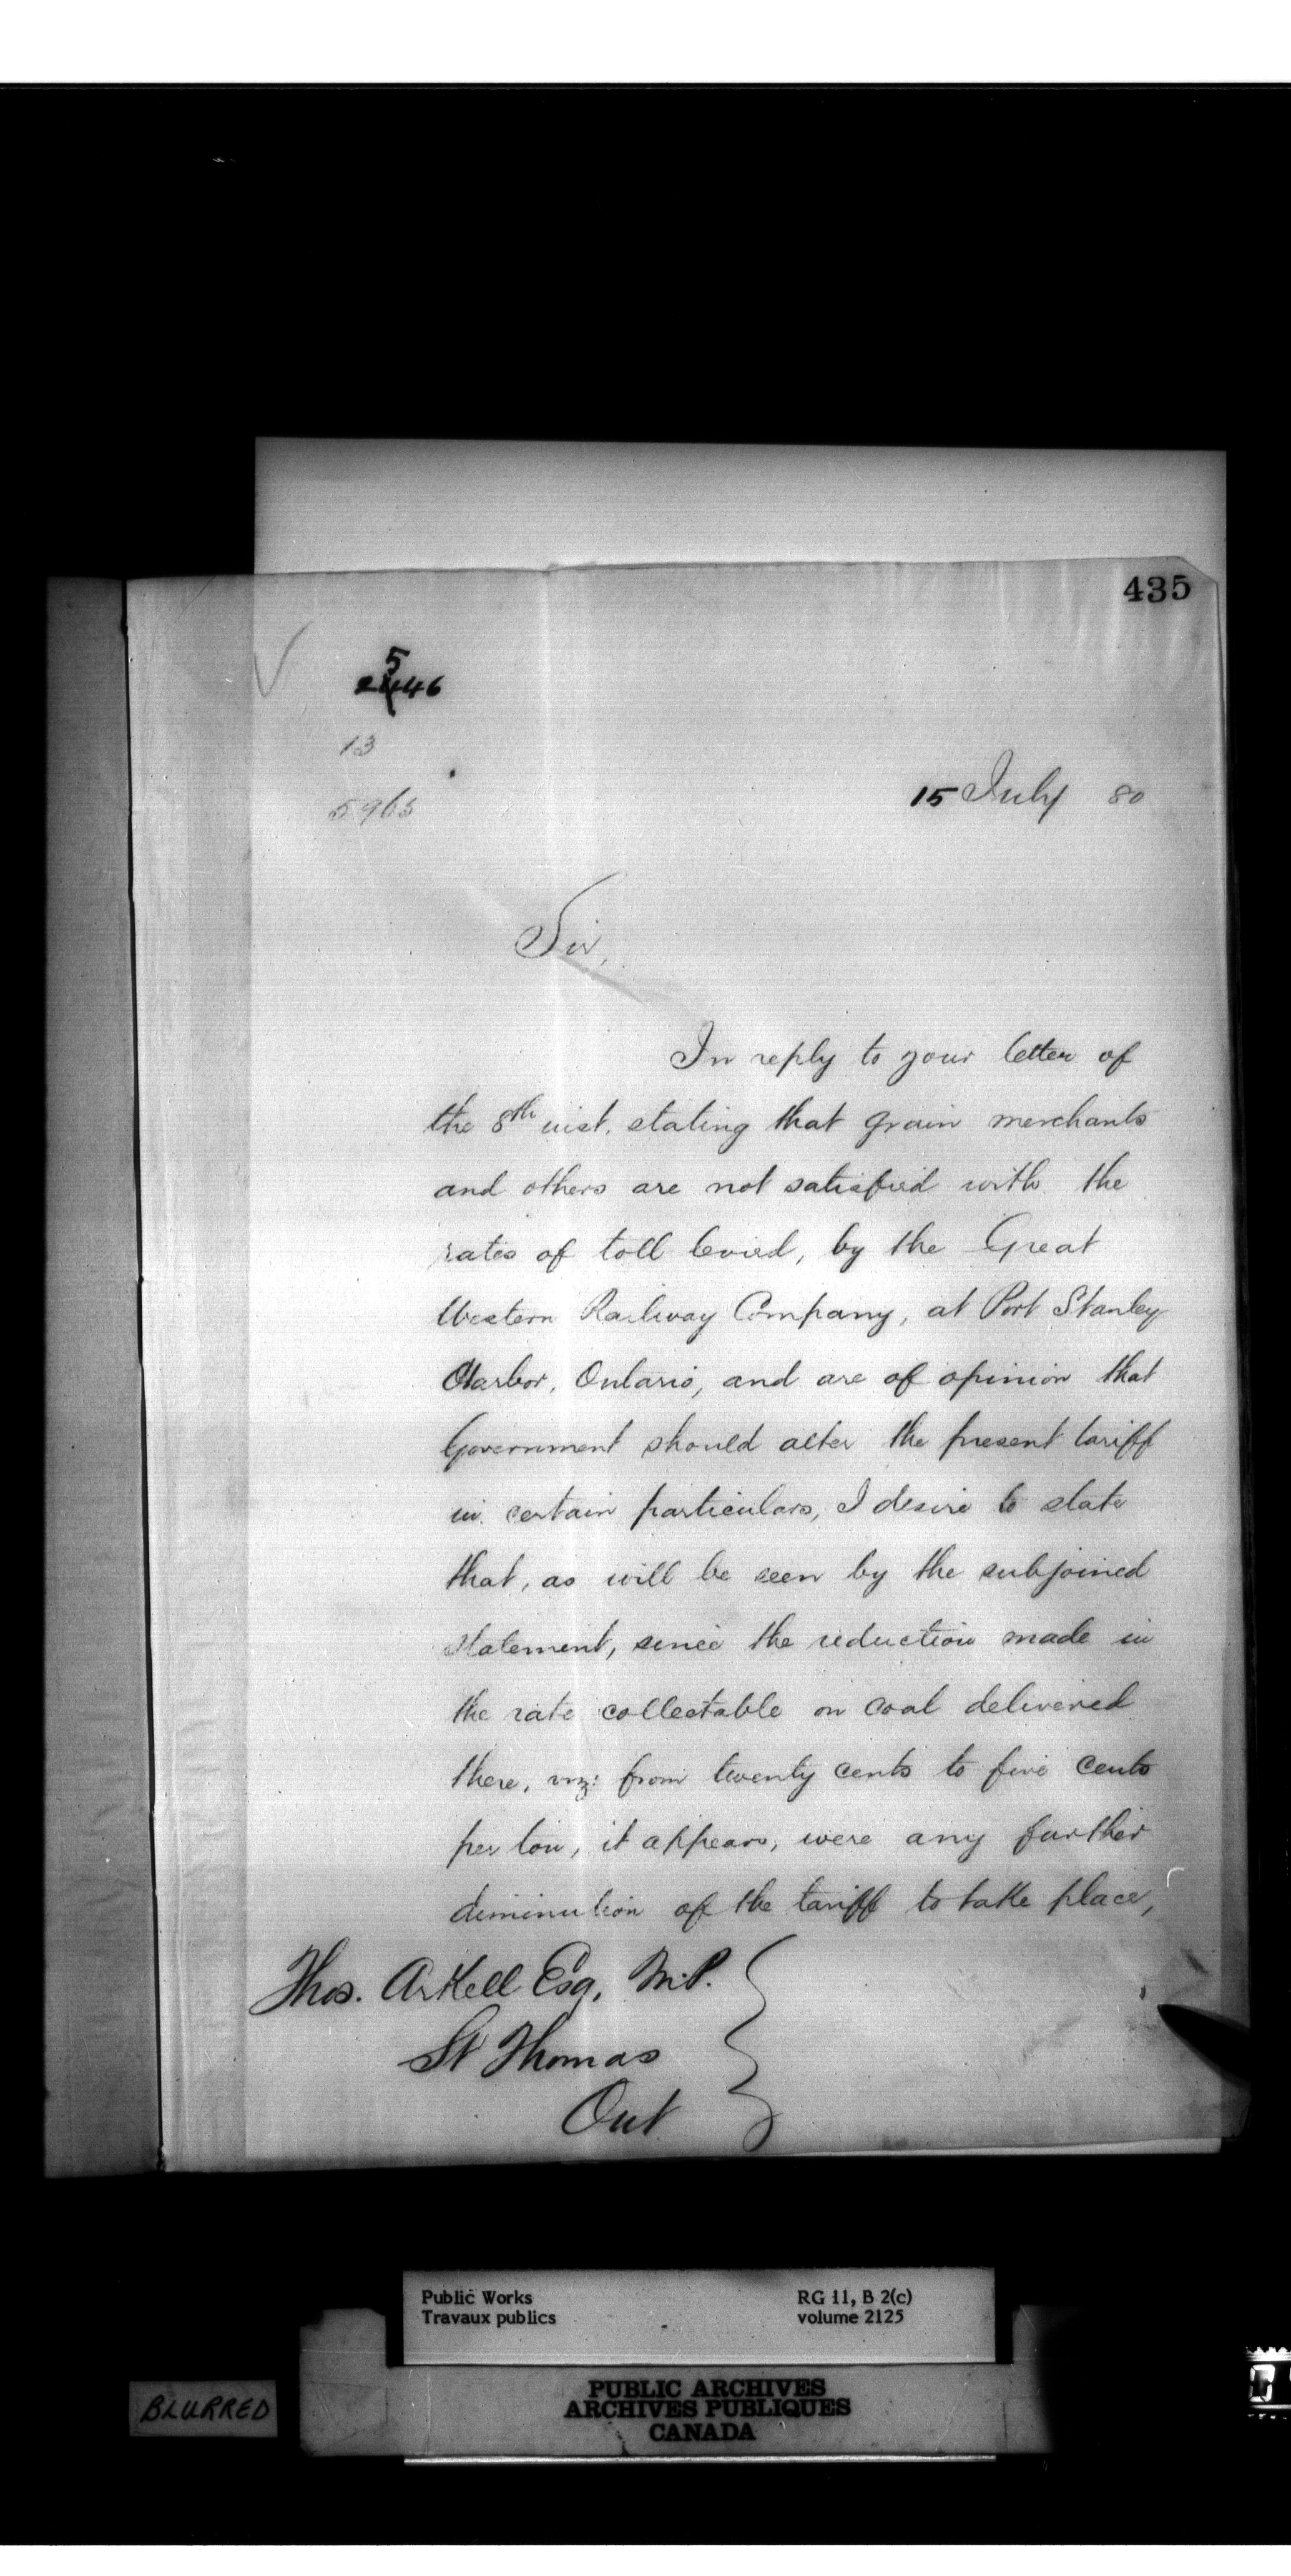 435
5
2446
13
5965
15 July 80
Sir,
In reply to your letter of
the 8th inst. stating that grain merchants
and others are not satisfied with the
rates of toll levied, by the Great
Western Railway Company, at Port Stanley
Harbor, Ontario, and are of opinion that
Government should alter the present tariff
in certain particulars, I desire to state
that, as will be seen by the subjoined
statement, since the reduction made in
the rate collectable on coal delivered
there, viz: from twenty cents to five cents
per ton, it appears, were any further
diminution of the tariff to take place,
Thos. Arkell Esq, M.P.
St Thomas
Ont
Public Works
Travaux publics
RG 11, B 2(c)
volume 2125
BLURRED
PUBLIC ARCHIVES
ARCHIVES PUBLIQUES
CANADA